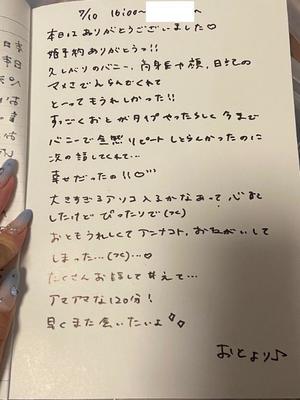 7/10 16:00〜
本日はありがとうございました♡
姫予約ありがとうっ!!
久しぶりのバニー、高身長や顔、日記の
マメさでえらんでくれて
とーってもうれしかった!!
すっごくおとがタイプやったらしく今まで
バニーで全然リピートしとらんかったのに
次の話してくれて...
幸せだったの!!♡
大きすぎるアソコ入るかなあって心配
したけどぴったりで(>_<)
おともうれしくてアンナコト、おねがいして
しまった...(>_<)...♡
たくさんお話して甘えて...
アマアマな120分!
早くまた会いたいよ
おとより♪